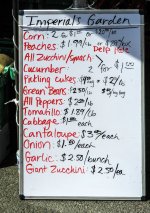 Imperial's Garden
Corn:
Peaches: $1.99/lb
All Zucchini/Squash:
Cucumber 2 for $1.00
Pickling Cukes
Green Beans $2.50/lb
All Peppers: $2.00/lb
Tomatillo: $1.89/lb
Cabbage: $1.00 each
Cantaloupe: $3.00/each
Onion: $1.50/each
Garlic: $2.50/bunch
Giant Zucchini: $2.50/ea